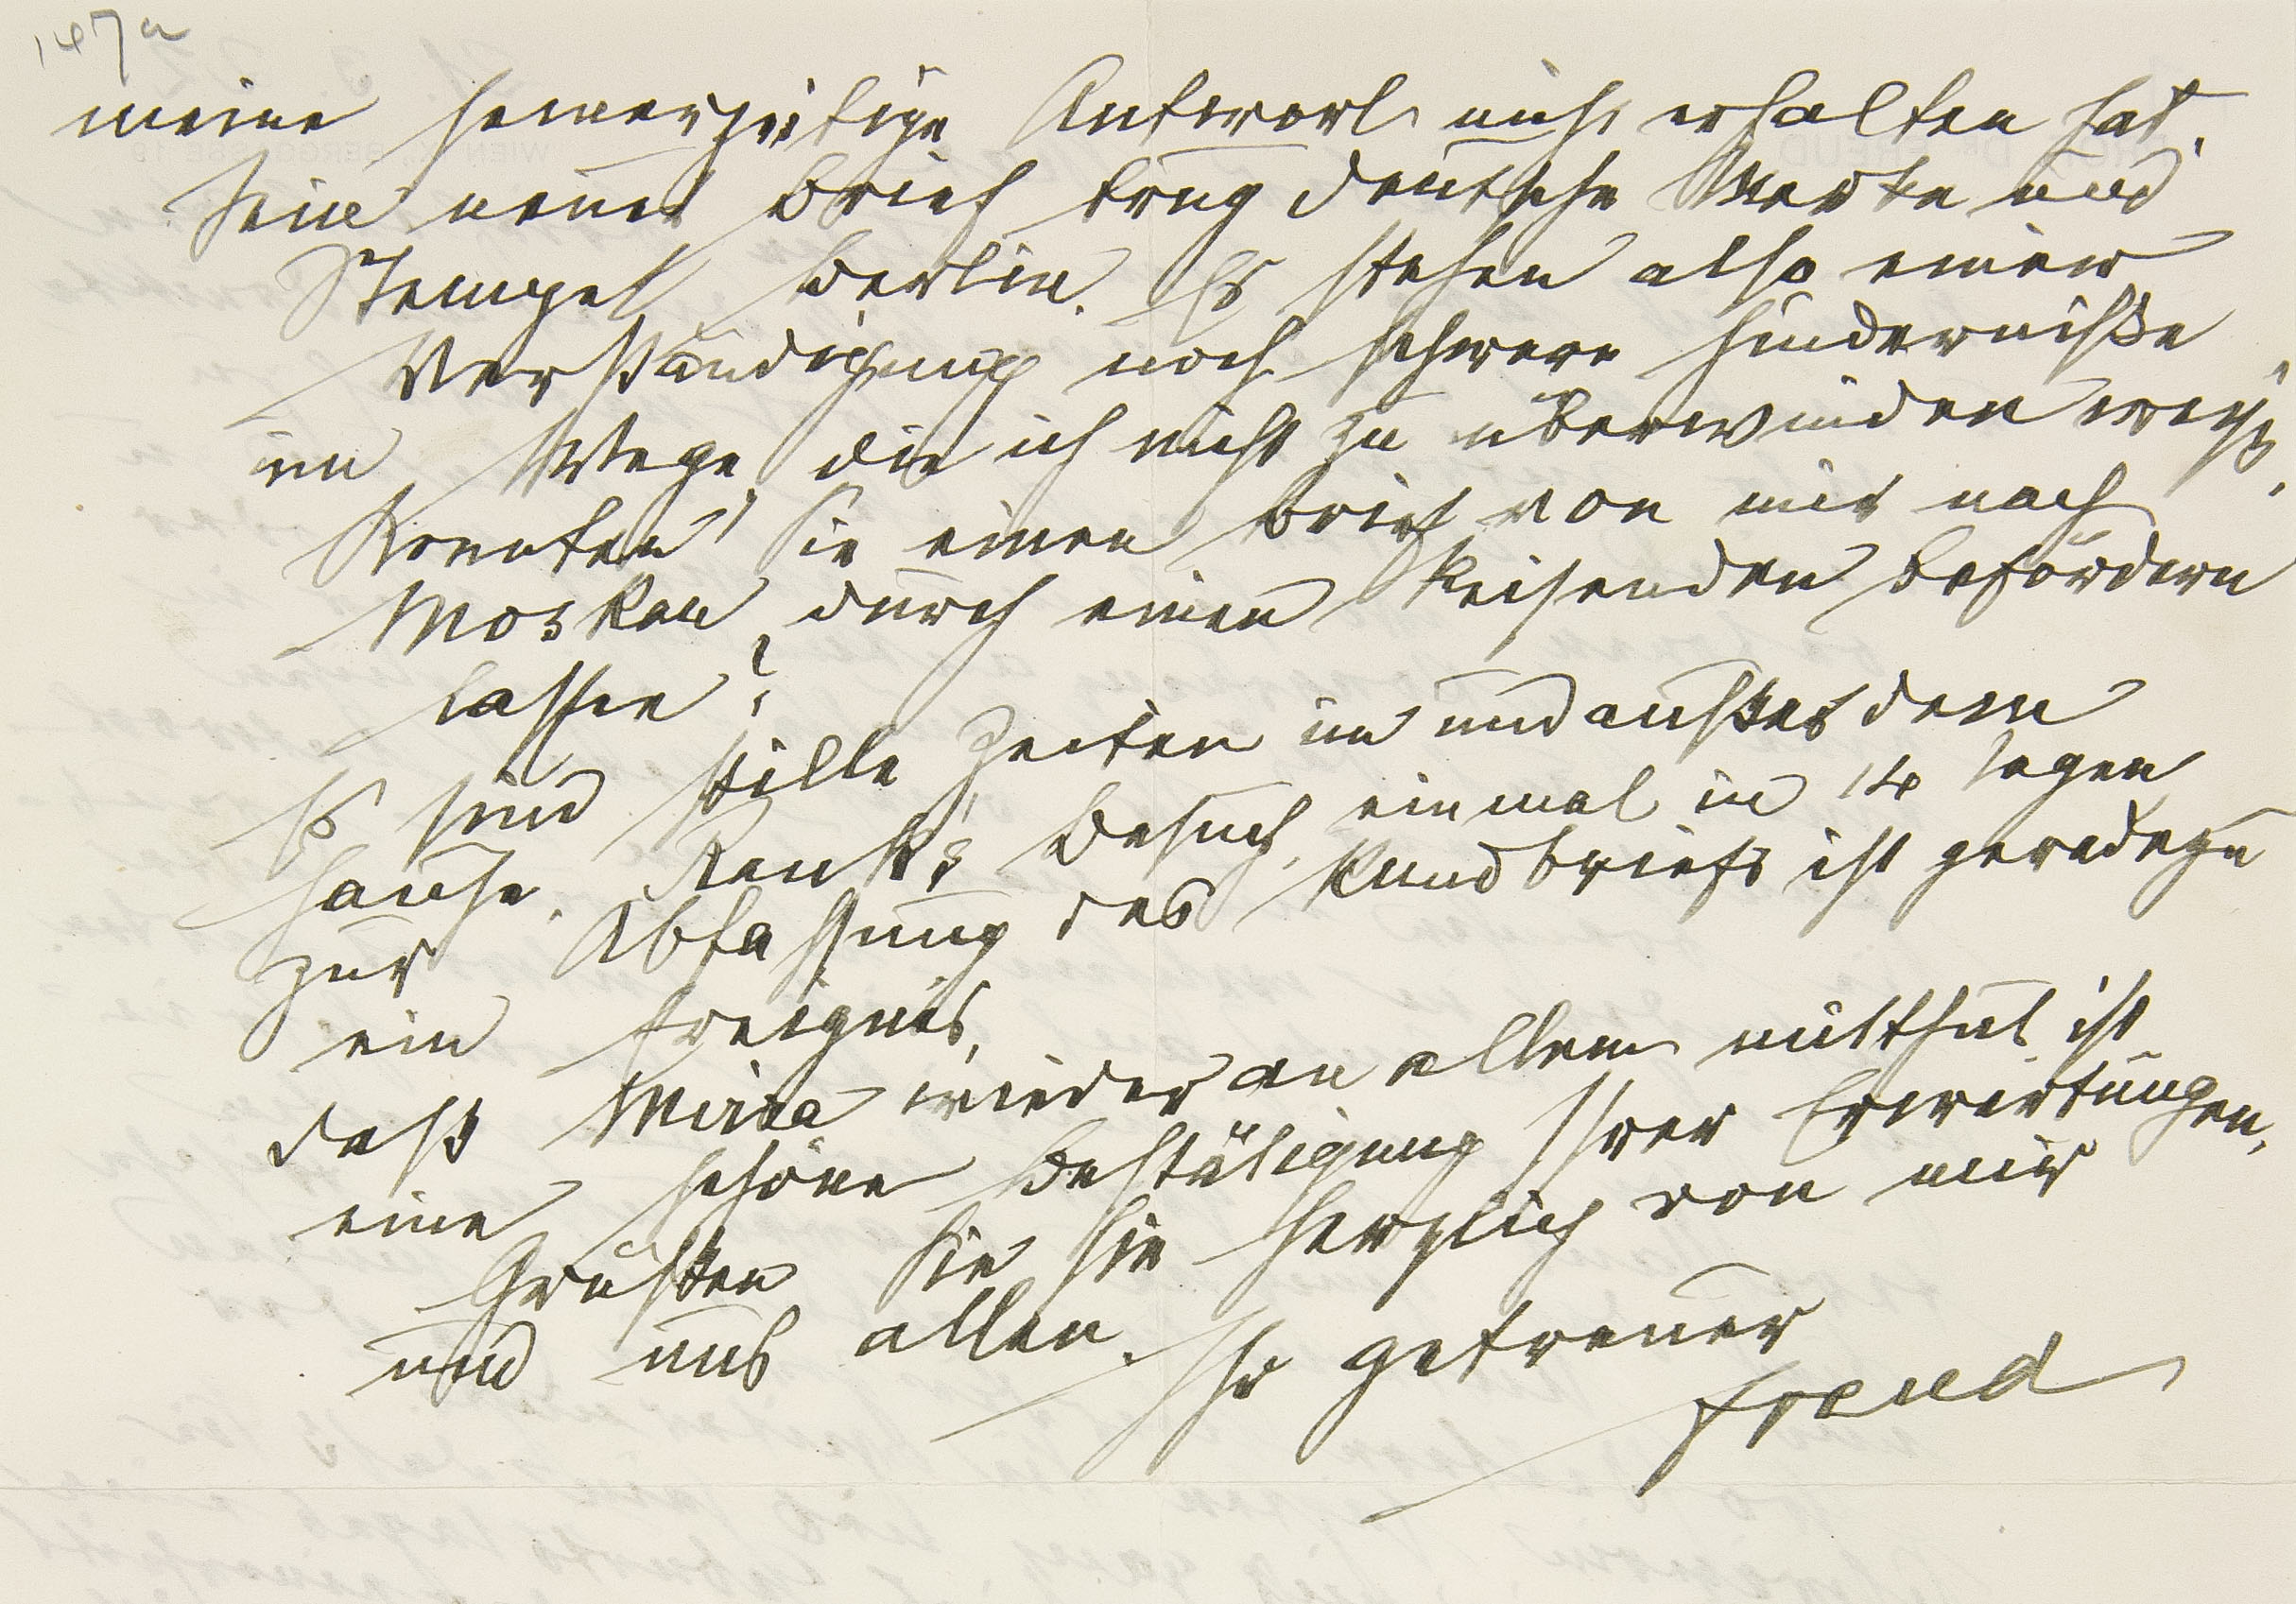 147a
meine seinerzeitige Antwort nicht erhalten hat.
Sein neuer Brief trug deutsche Marke und
Stempel Berlin. Es stehen also einer
Verständigung noch schwere Hinderniße
im Wege, die ich nicht zu überwinden weiß.
Konnten Sie einen Brief von mir nach
Moskau durch einen Reisenden befördern
lassen?
Es sind stille Zeiten im und außer dem
Hause. Rank's Besuch einmal in 14 Tagen
zur Abfassung des Rundbriefs ist geradezu
ein Ereignis.
Daß Mirra wieder an allem mitthut ist
eine schöne Bestätigung Ihrer Erwartungen.
Grüßen Sie sie herzlich von mir
und uns allen. Ihr getreuer
Freud